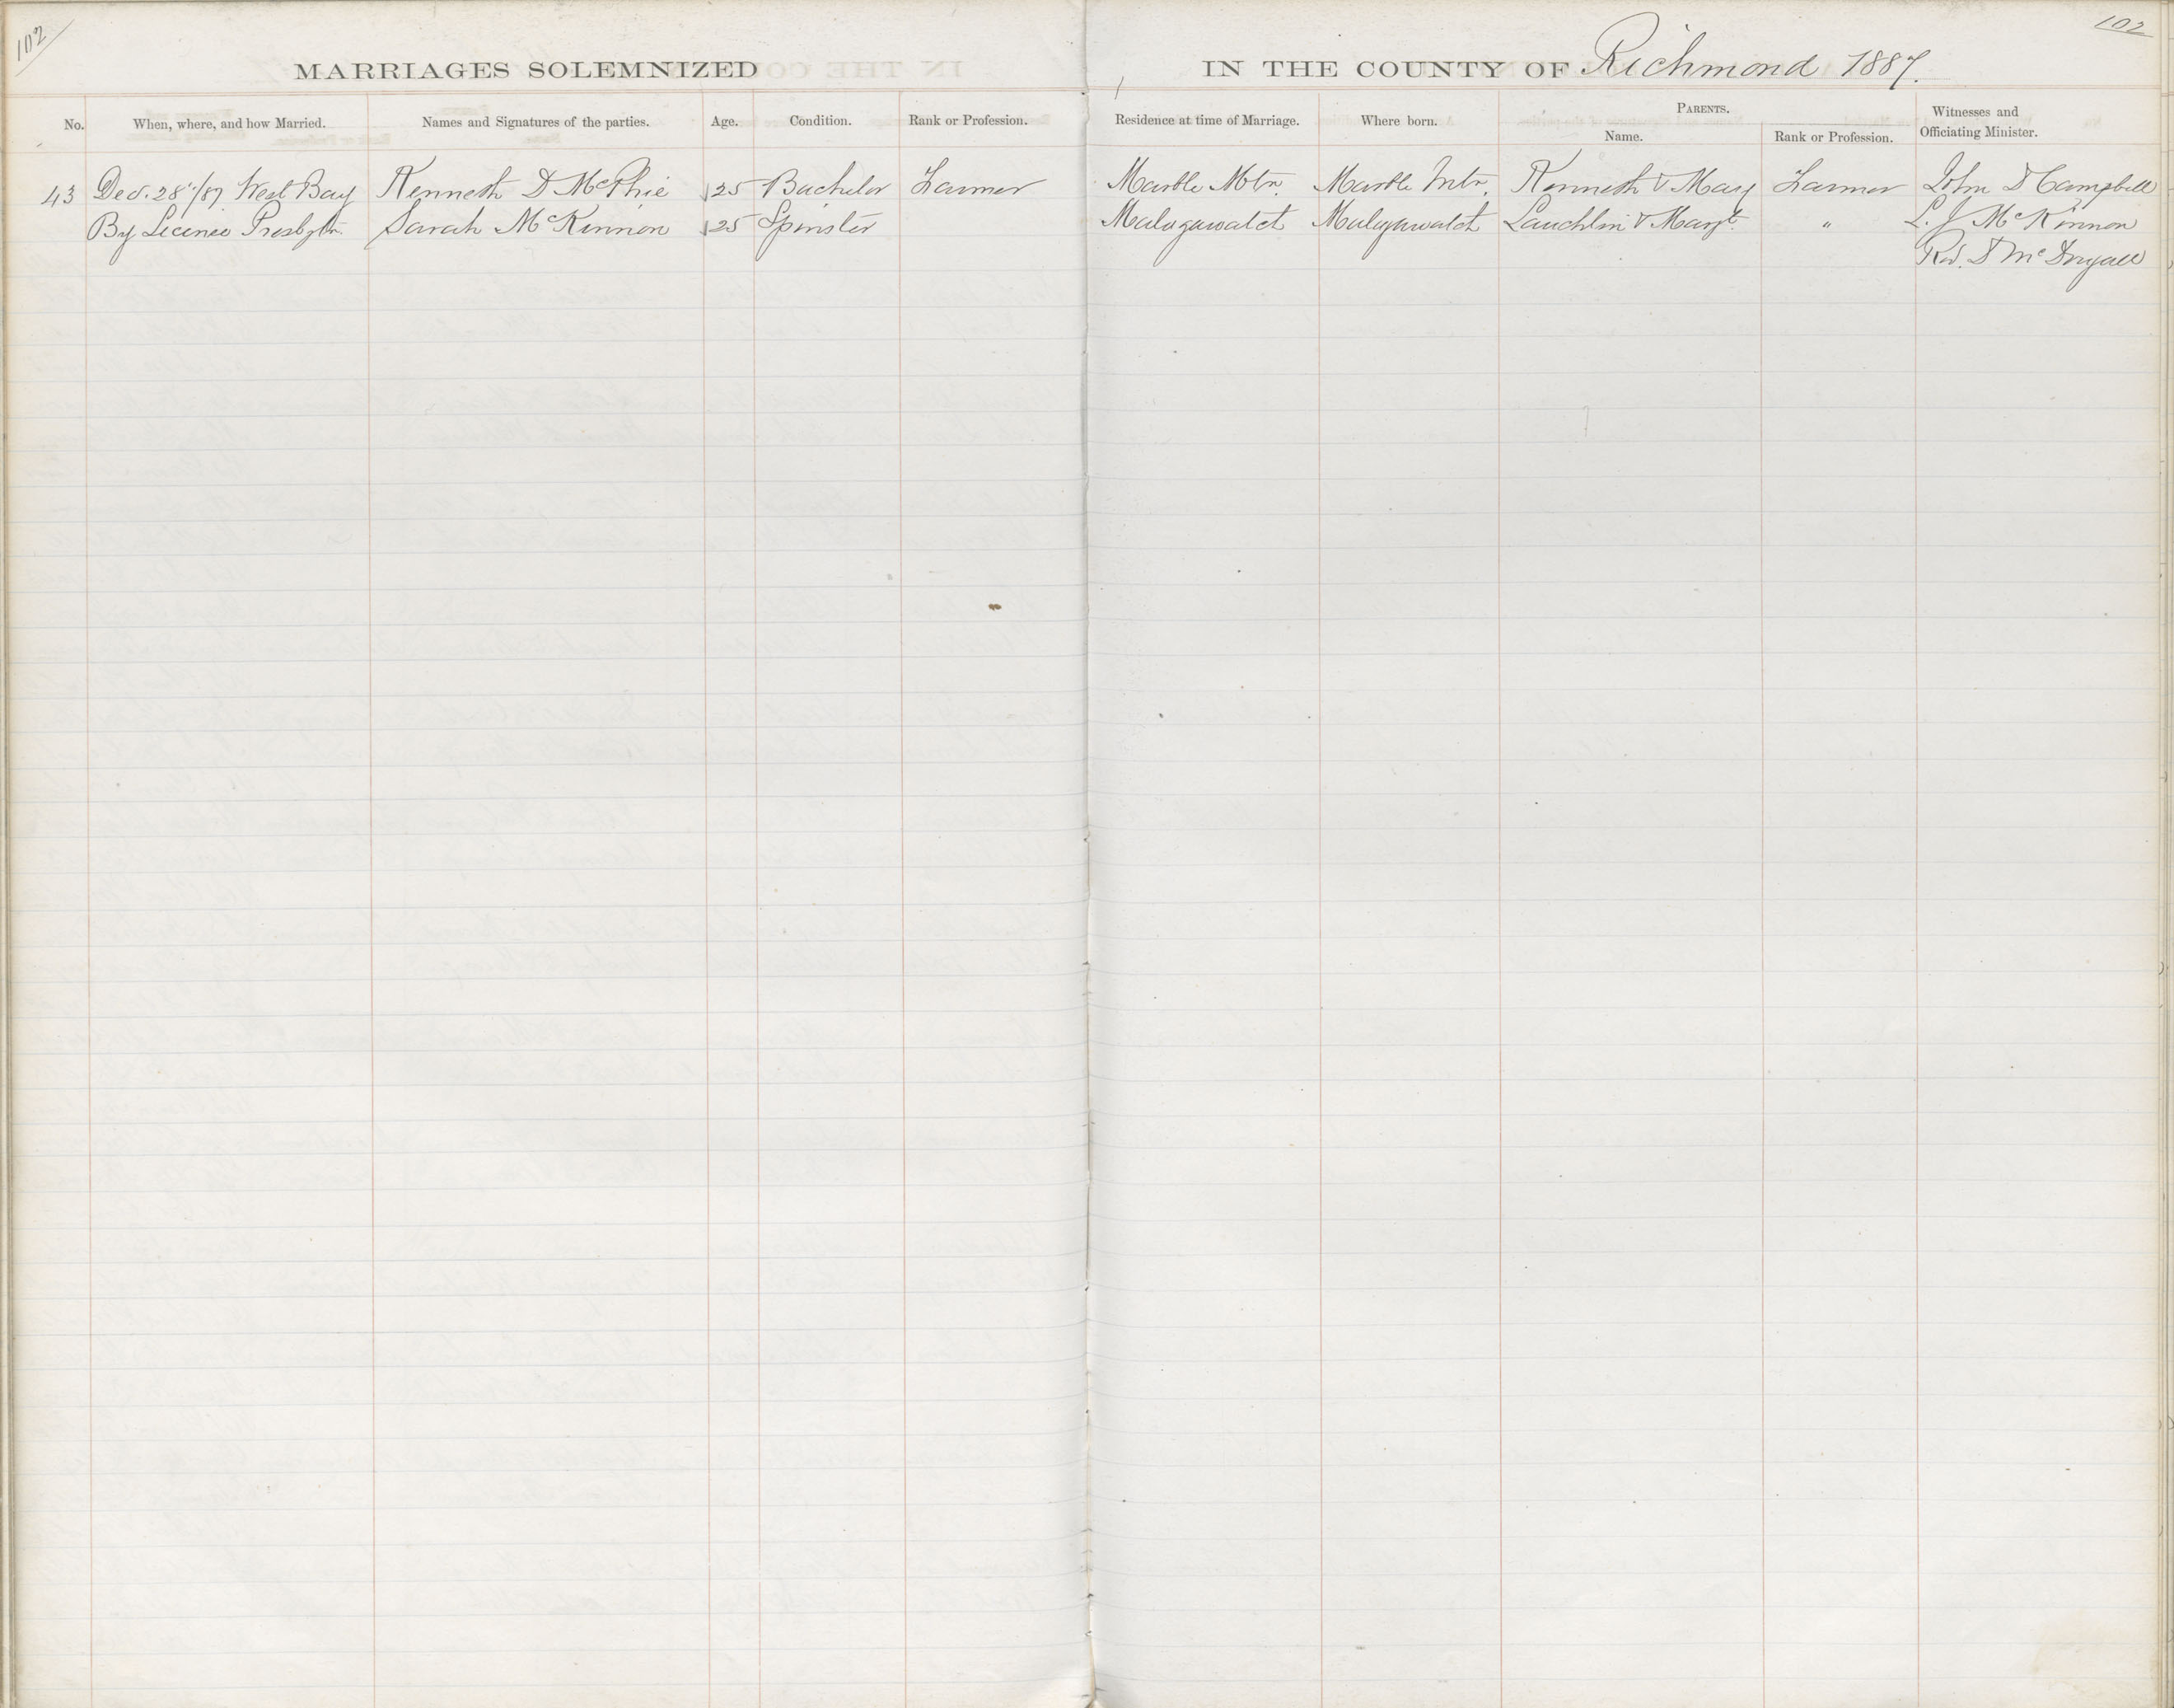 102
102
MARRIAGES SOLEMNIZED IN THE COUNTY OF Richmond 1887.
No. When, where, and how Married. Names and Signatures of the parties. Age. Condition. Rank or Profession. Residence at time of Marriage. Where born. PARENTS. Name. Rank or Profession. Witnesses and Officiating Minister.
43 Dec. 28"/87 West Bay Kenneth D McPhie 25 Bachelor Farmer Marble Mtn. Marble Mtn. Kenneth & Mary Farmer John D Campbell
By Licence Presbytn. Sarah McKinnon 25 Spinster Malagawatct Malagawatch Lauchlin & Margt. " L. J McKinnon
Rev. D McDougall